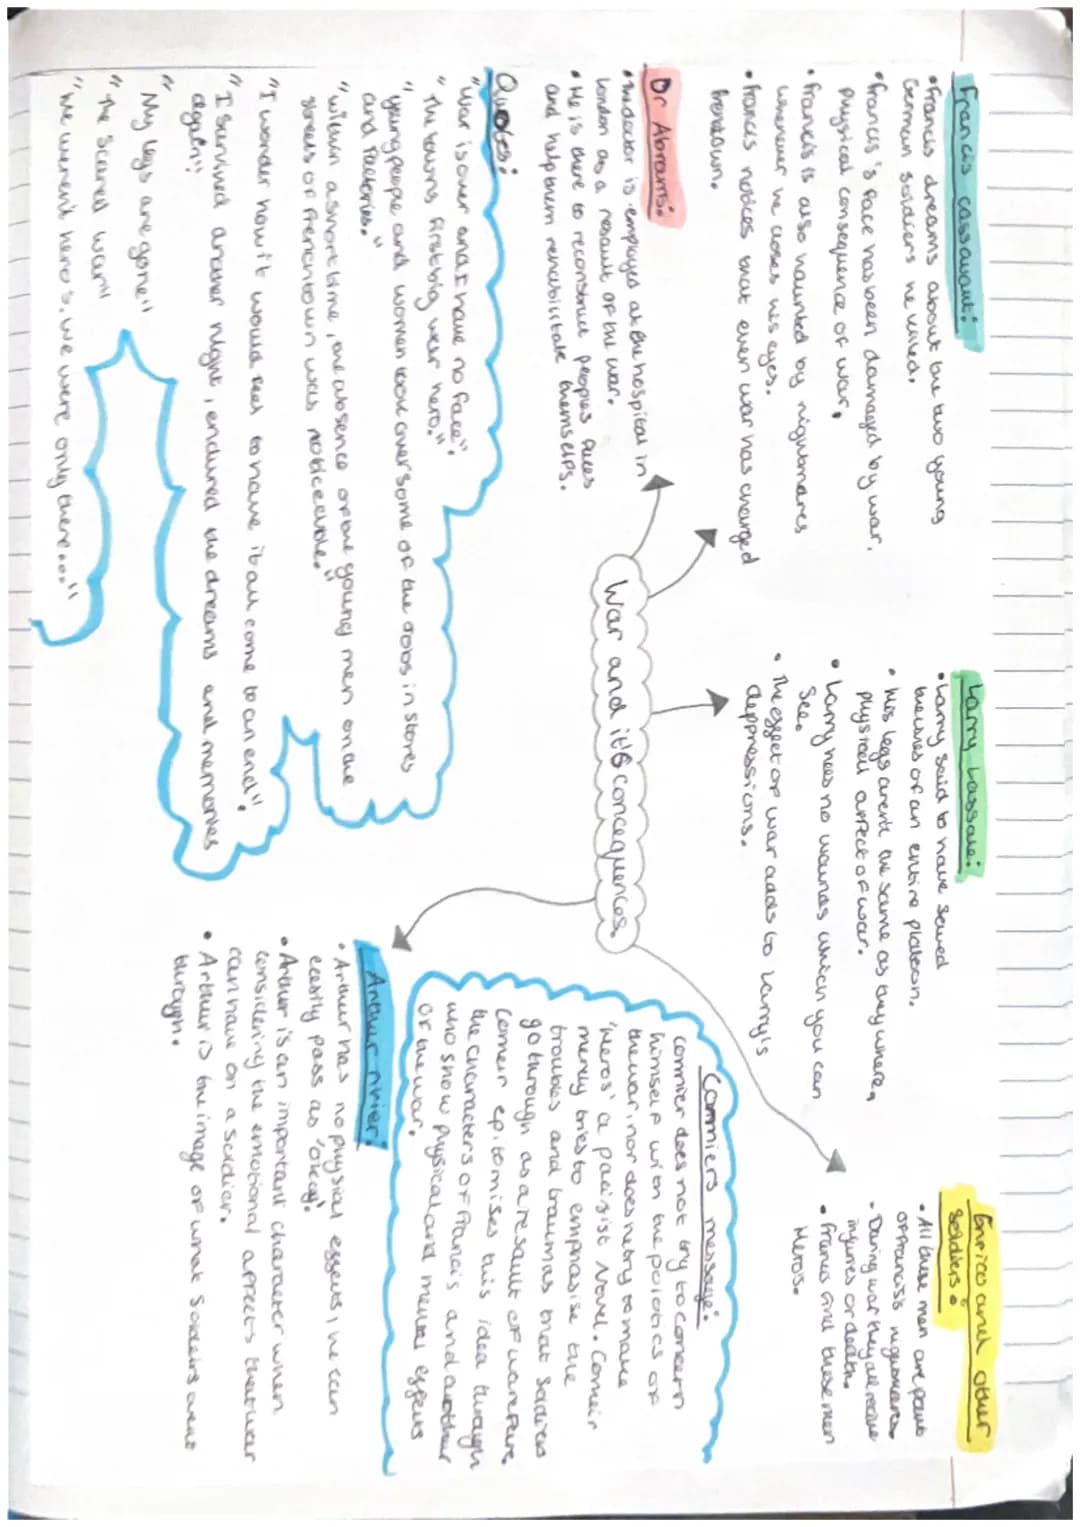 Francis cassavant:
• Francis dreams about the two young
German soldiers he killed.
• Francis's face has been damaged by war.
Physical consequence of war.
• Francis is also haunted by nightmares
whenever he closes his eyes.
• francis notices that even war has changed
frenchtown.
Dr Abrams:
• The doctor is employed at the hospital in
London as a resault of the war.
• He is there to reconstruct peoples faces
and help them rehabilitate themselfs.
Larry Lassale:
• Larry said to have saved
the lives of an entire platoon.
• his legs arent the same as they where,
physical affect of war.
• Larry has no wounds which you can
see.
• The effect of war adds to Larry's
deppressions.
Enrico and other
soldiers:
• All these men are part
of francis's nightmares
• During war they all recive
injuries or death.
• francis and these men
Heros.
War and it's concequences.
Quotes:
"War is our and I have no face".
"The towns first big war hero."
"young people and women took over some of the jobs in stores
and factories."
"within a short time, the absence of the young men on the
streets of frenchtown was noticeable."
"I wonder how it would feel to have it all come to an end".
"I survived another night, endured the dreams and memories
again"
"My legs are gone"
"The scared war"
"We weren't hero's, we were only there..."
Cormiers message:
cormier does not try to concern
himself with the polotics of
the war, nor does he try to make
'Heros' a pacifist Novel. Comeir
merely tries to emphasise the
troubles and traumas that Soldiers
go through as a resault of warefare.
Comeir epitomises this idea through
the characters of Francis and Authur
who show Physical and mental effects
of the war.
Arthur rivier:
• Arthur has no physial effects, he can
easily pass as 'okay'.
• Arthur is an important character when
considering the emotional affects that war
can have on a soldier.
• Arthur is the image of what Soldiers went
through.